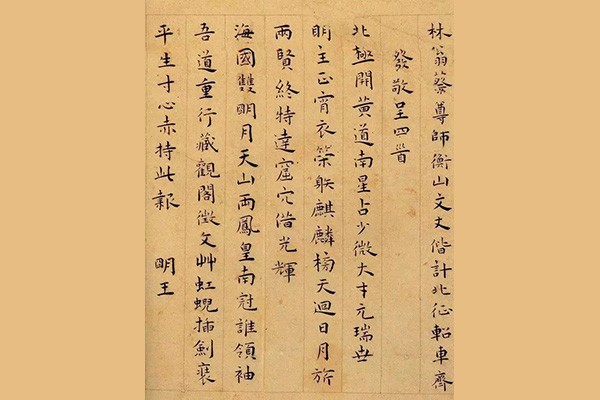 林翁蔡尊師衡山文丈偕計北征軺車齊
發敬呈四首
北極開黃道南星占少微大才元瑞世
明主正宵衣策䠶麒麟榜天迴日月旂
兩賢終特達窟穴借光輝
海國雙明月天山兩鳳皇南冠誰領袖
吾道重行藏觀閣徵文艸虹蜺插劍裹
平生寸心赤持此報 明王